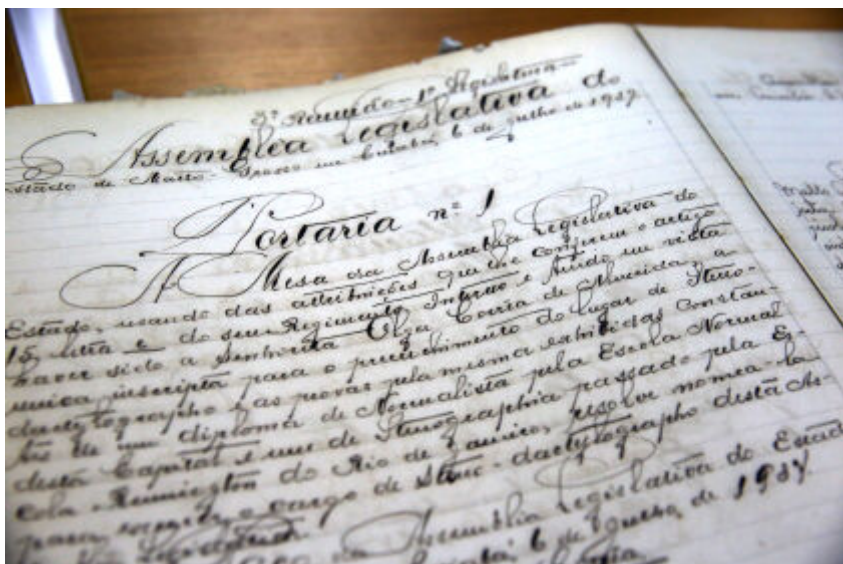 3ª Reunião - 1ª Legislatura
Assembléa Legislativa do
Estado de Matto Grosso em Cuiabá, 6 de julho de 1937.
Portaria nº 1
A Mesa da Assembléa Legislativa do
Estado, usando das attribuições que lhe conferem o artigo
15, letra e do seu Regimento Interno e tendo em vista
haver sido a Senhorita Olga Corrêa de Almeida, a
unica inscripta para o preenchimento do lugar de Steno-
dactylographo e as provas pela mesma exhibidas constan-
tes de um diploma de Normalista pela Escola Normal
desta Capital e um de Stenographia passado pela Es-
cola Remington do Rio de Janeiro, resolve nomea-la
para exercer o cargo de steno-dactylographo desta As-
Legislativa.
Assembléa Legislativa do Estado
6 de julho, de 1937.